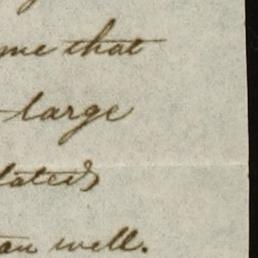 me that
large
lates
an well.